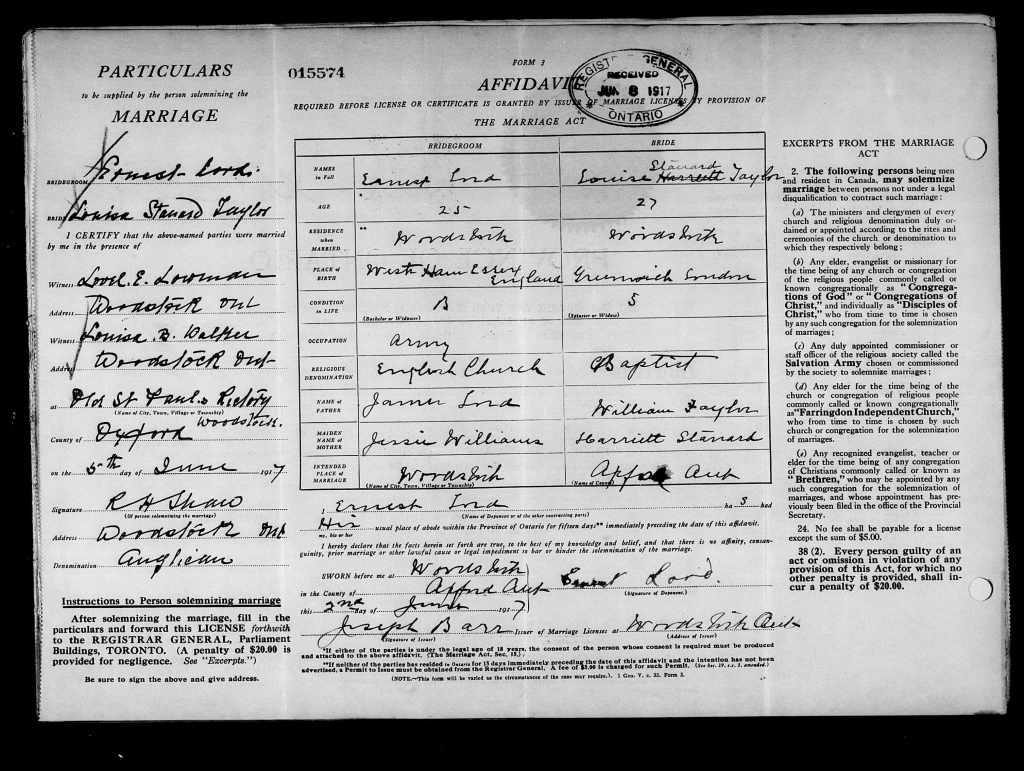 PARTICULARS
to be supplied by the person solemnizing the
MARRIAGE
BRIDEGROOM Ernest Lord.
BRIDE Louisa Stanard Taylor
I CERTIFY that the above-named parties were married
by me in the presence of
Witness Lovel. E. Lowman
Address Woodstock Ont
Witness Louisa. B. Walker
Address Woodstock Ont
at Old St Paul's Rectory
(Name of City, Town, Village or Township)
Woodstock.
County of Oxford
on the 5th day of June 1917
Signature R H Shaw
(Of person solemnizing the marriage)
Address Woodstock Ont
Denomination Anglican
Instructions to Person solemnizing marriage
After solemnizing the marriage, fill in the
particulars and forward this LICENSE forthwith
to the REGISTRAR GENERAL, Parliament
Buildings, TORONTO. (A penalty of $20.00 is
provided for negligence. See "Excerpts.")
Be sure to sign the above and give address.
015574
FORM 3
AFFIDAVIT
REGISTRAR GENERAL
RECEIVED
JUN 8 1917
ONTARIO
REQUIRED BEFORE LICENSE OR CERTIFICATE IS GRANTED BY ISSUER OF MARRIAGE LICENSES BY PROVISION OF
THE MARRIAGE ACT
BRIDEGROOM BRIDE
NAMES in Full Ernest Lord Louise Stanard Harriett Taylor
AGE * 25 27
RESIDENCE when MARRIED ** Woodstock Woodstock
PLACE of BIRTH West Ham Essex England Greenwich London
CONDITION in LIFE B S
(Bachelor or Widower) (Spinster or Widow)
OCCUPATION Army
RELIGIOUS DENOMINATION English Church Baptist
NAME of FATHER James Lord William Taylor
MAIDEN NAME of MOTHER Jessie Williams Harriett Stanard
INTENDED PLACE of MARRIAGE Woodstock Oxford Ont
(Name of City, Town, Village or Township) (Name of County)
I Ernest Lord ha s had
(Name of Deponent or of the other contracting party)
His usual place of abode within the Province of Ontario for fifteen days** immediately preceding the date of this affidavit.
my, his or her
I hereby declare that the facts herein set forth are true, to the best of my knowledge and belief, and that there is no affinity, consan-
guinity, prior marriage or other lawful cause or legal impediment to bar or hinder the solemnization of the marriage.
SWORN before me at Woodstock
in the County of Oxford Ont Ernest Lord.
(Signature of Deponent)
this 2nd day of June 1917
Joseph Barr Issuer of Marriage Licenses at Woodstock Ont
(Signature of Issuer) (Address of Issuer)
*If either of the parties is under the legal age of 18 years, the consent of the person whose consent is required must be produced
and attached to the above affidavit. (The Marriage Act, Sec. 15.)
**If neither of the parties has resided in Ontario for 15 days immediately preceding the date of this affidavit and the intention has not been
advertised, a Permit to Issue must be obtained from the Registrar General. A fee of $3.00 is charged for such Permit. (See Sec. 19, s.s. 3, amended.)
(NOTE.—This form will be varied as the circumstances of the case may require.) 1 Geo. V. c. 32. Form 3.
EXCERPTS FROM THE MARRIAGE
ACT
2. The following persons being men
and resident in Canada, may solemnize
marriage between persons not under a legal
disqualification to contract such marriage:
(a) The ministers and clergymen of every
church and religious denomination duly or-
dained or appointed according to the rites and
ceremonies of the church or denomination to
which they respectively belong;
(b) Any elder, evangelist or missionary for
the time being of any church or congregation
of the religious people commonly called or
known congregationally as "Congrega-
tions of God" or "Congregations of
Christ," and individually as "Disciples of
Christ," who from time to time is chosen
by any such congregation for the solemnization
of marriages;
(c) Any duly appointed commissioner or
staff officer of the religious society called the
Salvation Army chosen or commissioned
by the society to solemnize marriages;
(d) Any elder for the time being of the
church or congregation of religious people
commonly called or known congregationally
as "Farringdon Independent Church,"
who from time to time is chosen by such
church or congregation for the solemnization
of marriages.
(e) Any recognized evangelist, teacher or
elder for the time being of any congregation
of Christians commonly called or known as
"Brethren," who may be appointed by any
such congregation for the solemnization of
marriages, and whose appointment has pre-
viously been filed in the office of the Provincial
Secretary.
24. No fee shall be payable for a license
except the sum of $5.00.
38 (2). Every person guilty of an
act or omission in violation of any
provision of this Act, for which no
other penalty is provided, shall in-
cur a penalty of $20.00.